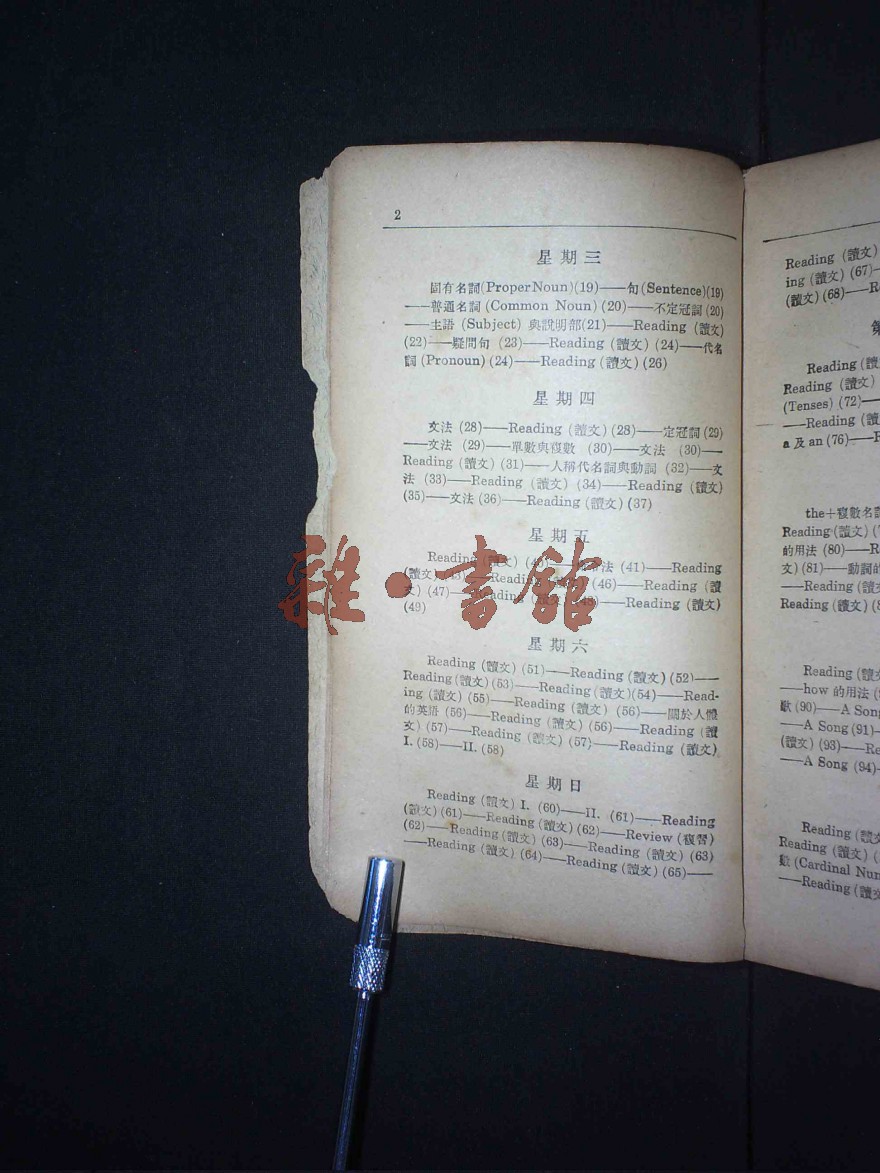 2
星期三
固有名詞(Proper Noun)(19)——句(Sentence)(19)
——普通名詞 (Common Noun) (20)——不定冠詞 (20)
——主語 (Subject) 與說明部(21)——Reading (讀文)
(22)——疑問句 (23)——Reading (讀文) (24)——代名
詞 (Pronoun) (24)——Reading (讀文) (26)
星期四
文法 (28)——Reading (讀文) (28)——定冠詞 (29)
——文法 (29)——單數與複數 (30)——文法 (30)——
Reading (讀文) (31)——人稱代名詞與動詞 (32)——文
法 (33)——Reading (讀文) (34)——Reading (讀文)
(35)——文法 (36)——Reading (讀文) (37)
星期五
Reading (讀文) (40)——法 (41)——Reading
(讀文) (43)——Reading (讀文) (46)——Reading (讀
文) (47)——Reading (讀文) (48)——Reading (讀文)
(49)
星期六
Reading (讀文) (51)——Reading (讀文) (52)——
Reading (讀文) (53)——Reading (讀文) (54)——Read-
ing (讀文) (55)——Reading (讀文) (56)——關於人體
的英語 (56)——Reading (讀文) (56)——Reading (讀
文) (57)——Reading (讀文) (57)——Reading (讀文)
I. (58)——II. (58)
星期日
Reading (讀文) I. (60)——II. (61)——Reading
(讀文) (61)——Reading (讀文) (62)——Review (複習)
(62)——Reading (讀文) (63)——Reading (讀文) (63)
——Reading (讀文) (64)——Reading (讀文) (65)——
Reading (讀文)
ing (讀文) (67)——
(讀文) (68)——Re
第
Reading (讀
Reading (讀文)
(Tenses) (72)——
——Reading (讀
a 及 an (76)——R
the+複數名
Reading (讀文) (7
的用法 (80)——R
文) (81)——動詞的
——Reading (讀文
Reading (讀文) (8
Reading (讀文
——how 的用法 (
歌 (90)——A Song
——A Song (91)—
(讀文) (93)——Re
——A Song (94)—
Reading (讀文
Reading (讀文) (
數 (Cardinal Num
——Reading (讀文
雜·書館